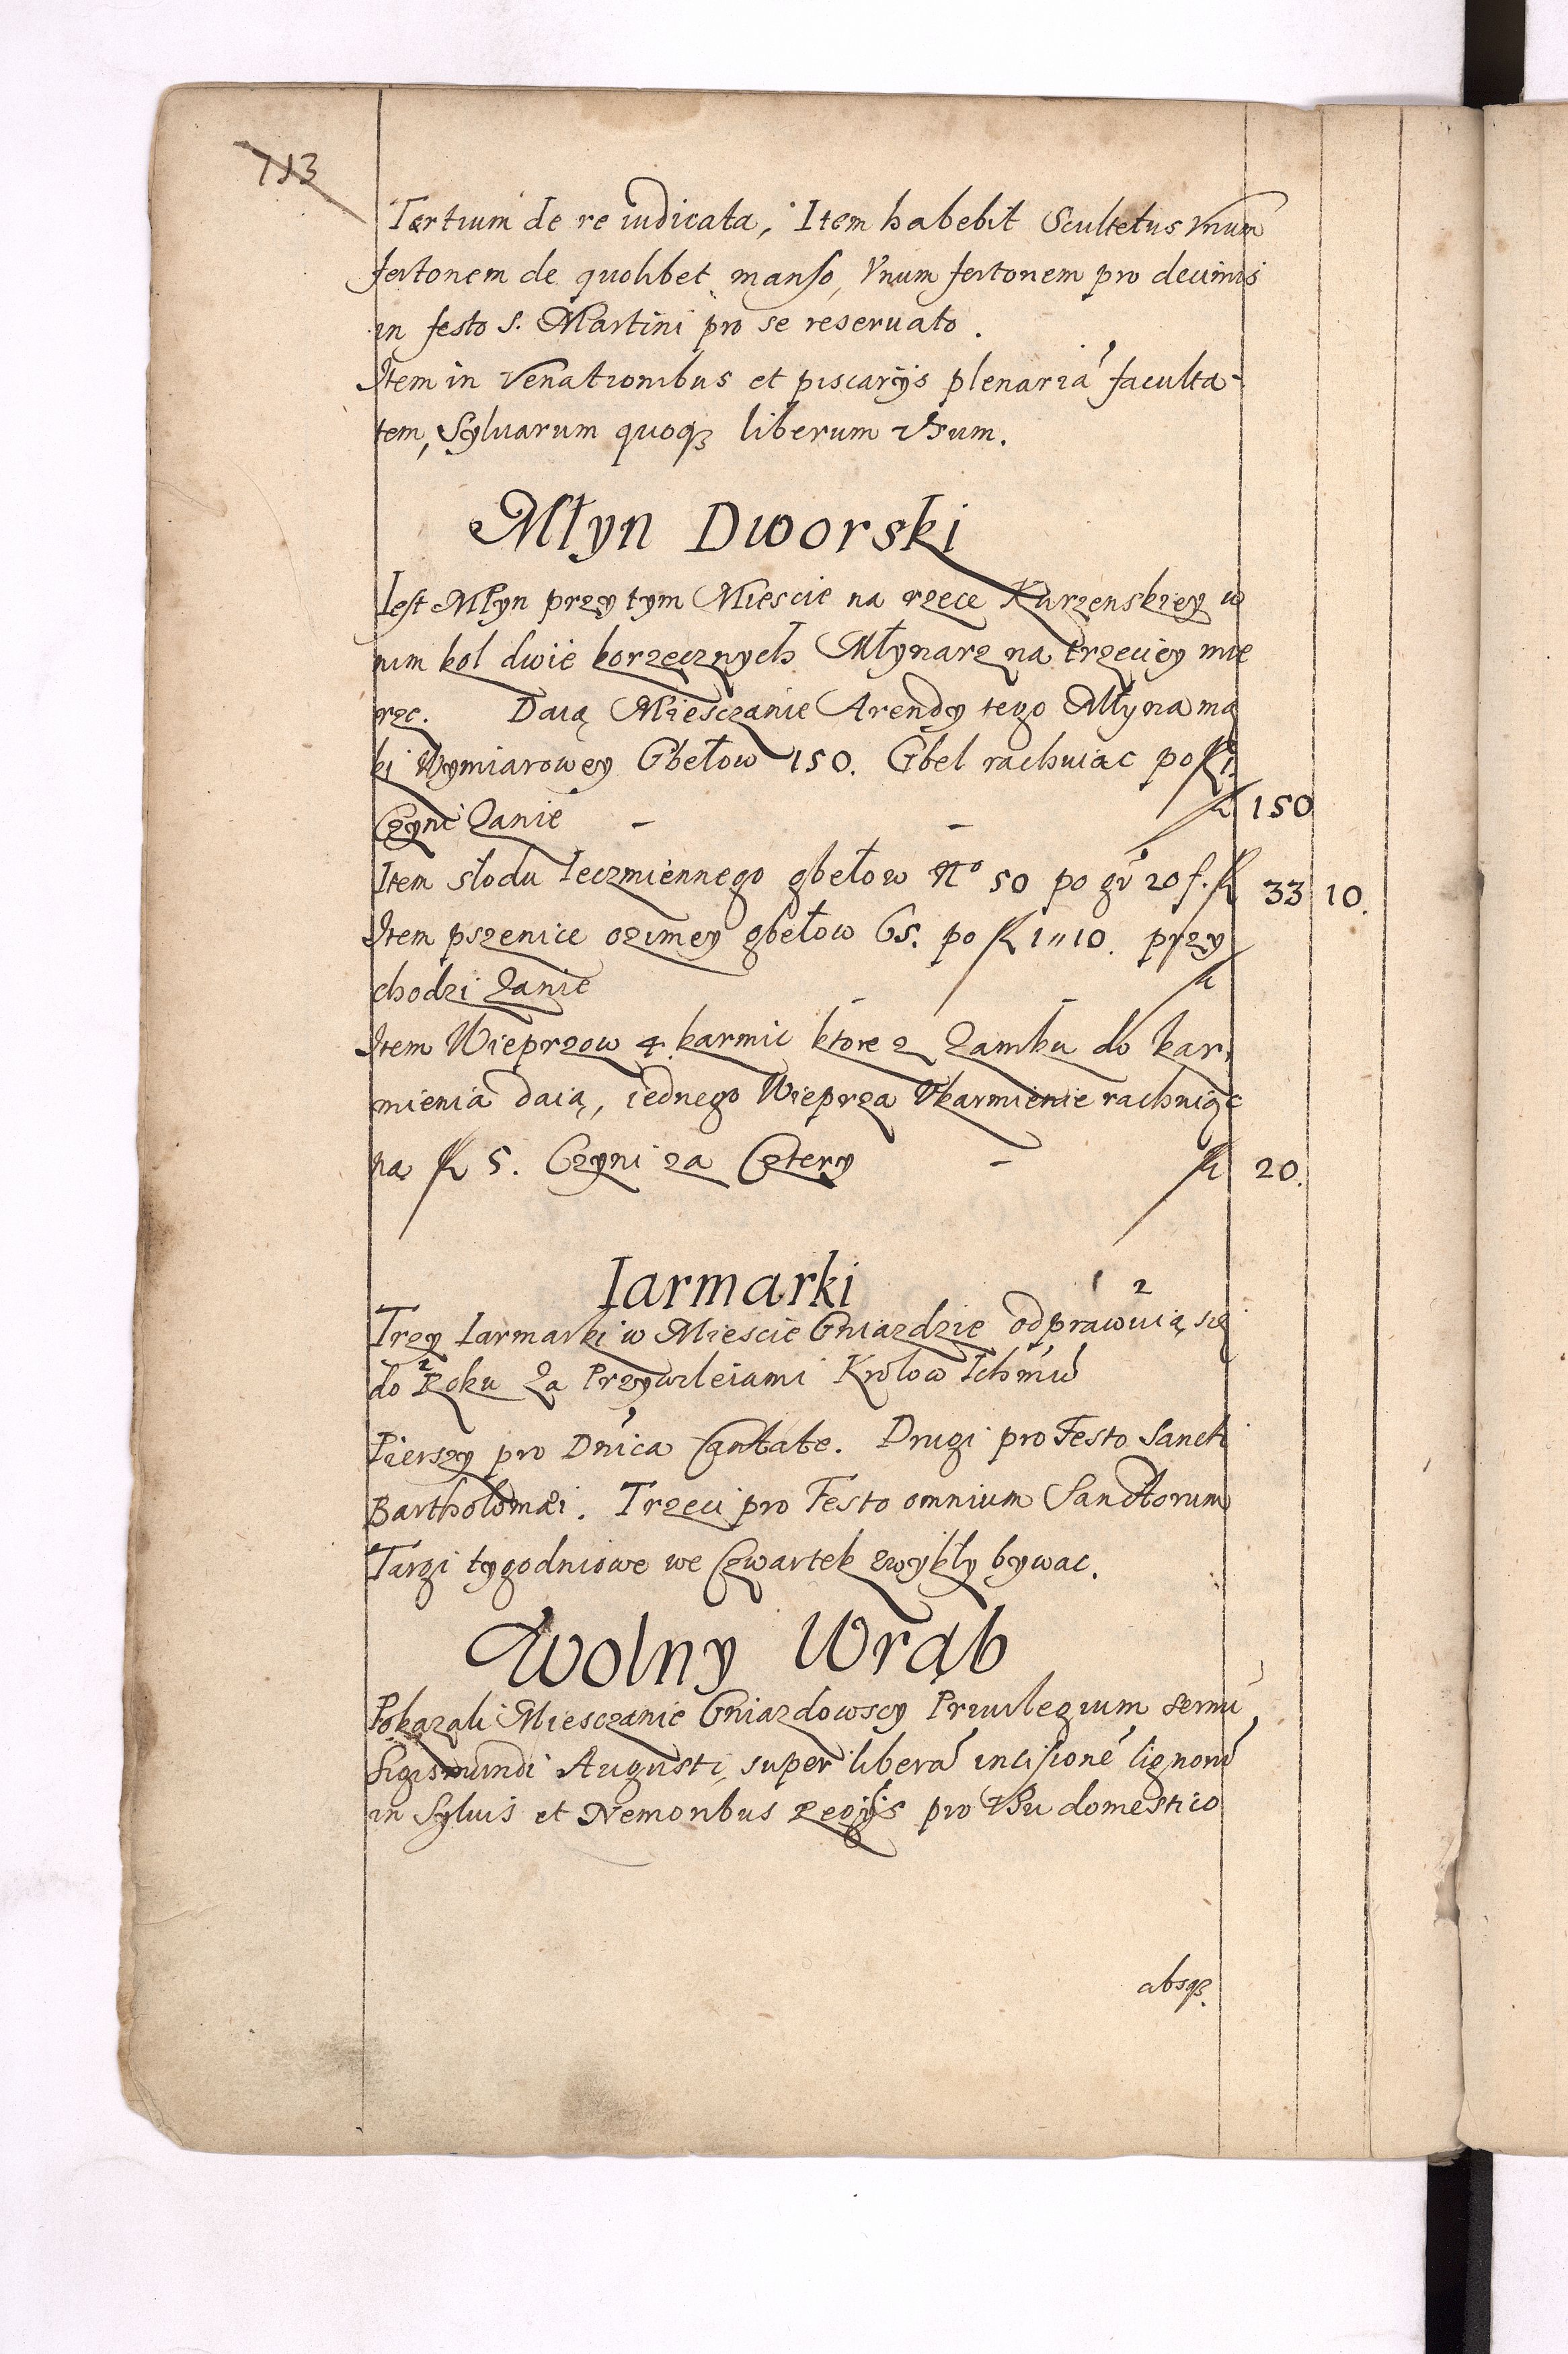 713
Tertium de re iudicata, Item habebit Scultetus Vnum
fertonem de quolibet manso, Vnum fertonem pro decimis
in festo S. Martini pro se reseruato.
Item in Venationibus et piscarijs plenariá faculta-
tem, Syluarum quoqꝫ liberum Vsum.
Młyn Dworski
Iest Młyn przy tym Miescie na rzece Kurzenskiey w
nim kol dwie korzecznych Młynarz na trzeciey mie
rze. Daią Miesczanie Arendy tego Młyna mą
ki Wymiarowey Gbełow 150. Gbel rachuiac po fl 1.
Czyni Zanie - - fl 150
Item słodu Ieczmiennego gbełow No 50 po gr 20 f. fl 33 10.
Item pszenice ozimey gbełow 65. po fl 1 " 10. przy
chodzi Zanie - - fl
Item Wieprzow 4. karmic ktore z Zamku do kar,
mienia daią, iednego Wieprza Vkarmienie rachuiąc
na fl 5. Czyni za Cztery - fl 20.
Iarmarki
Trzy Iarmarki w Miescie Gniazdzie odprawuią się
do Roku Za Przywileiami Krolow Ichmć
Pierszy pro Dnica Cantate. Drugi pro Festo Sancti
Bartholomæi. Trzeci pro Festo omnium Sanctorum
Targi tygodniowe we Czwartek zwykły bywac.
Wolny Wrąb
Pokazali Miesczanie Gniazdowscy Priuilegium Sermi
Sigismundi Augusti, super liberá incisioné lignorú
in Syluis et Nemoribus Regijs pro Vsu domestico
absqꝫ